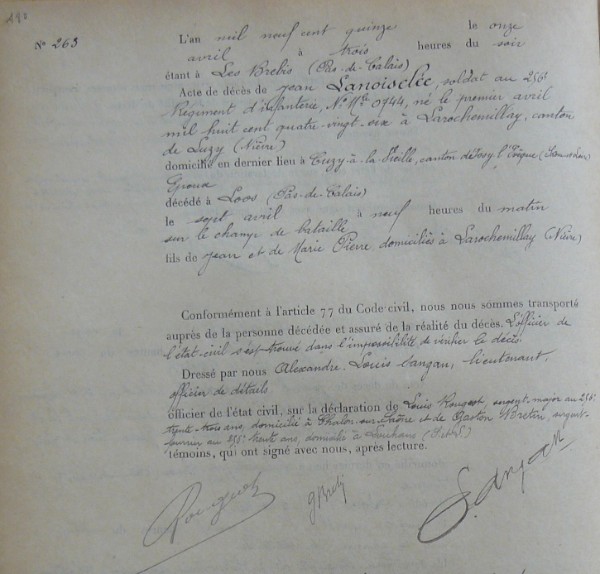 N° 263
L'an mil neuf cent quinze le onze
avril à trois heures du soir
étant à Les Brebis (Pas-de-Calais)
Acte de décès de Jean Lanoiselée, soldat au 256e
Régiment d'infanterie, N° Mle 0744, né le premier avril
mil huit cent quatre-vingt-six à Larochemillay, canton
de Luzy (Nièvre)
domicilié en dernier lieu à Cuzy-à-la canton d'Issy l'Evêque (Saône-et-Loire)
décédé à Loos (Pas-de-Calais)
le sept avril à neuf heures du matin
sur le champ de bataille
fils de Jean et de Marie Pierre domiciliés à Larochemillay (Nièvre)
Conformément à l'article 77 du Code civil, nous nous sommes transporté
auprès de la personne décédée et assuré de la réalité du décès. L'officier de
l'état-civil s'est trouvé dans l'impossibilité de vérifier le décès.
Dressé par nous Alexandre Louis lieutenant,
officier de détails
officier de l'état civil, sur la déclaration de Louis Rougeot, sergent-major au 256e
trente-trois ans, domicilié à Chalon-sur-Saône et de Gaston sergent-
fourrier au 256e trente ans, domicilié à Louhans
témoins, qui ont signé avec nous, après lecture.
Rougeot